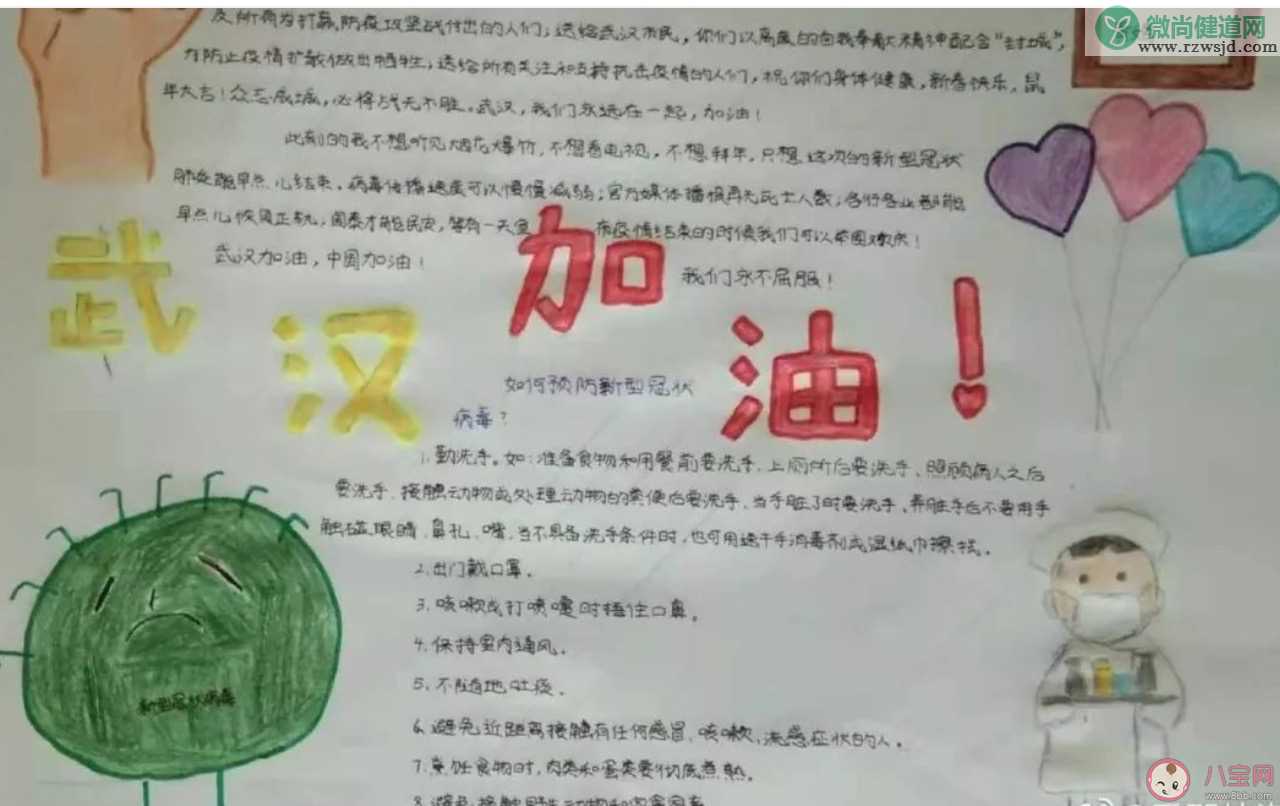 及所有为打赢防疫攻坚战付出的人们；送给武汉市民，你们以高度的自我奉献精神配合“封城”，
为防止疫情扩散做出牺牲；送给所有关注和支持抗击疫情的人们，祝你们身体健康，新春快乐，鼠
年大吉！众志成城，必将战无不胜。武汉，我们永远在一起，加油！
此刻的我不想听见烟花爆竹，不想看电视，不想拜年，只想这次的新型冠状
肺炎能早点儿结束。病毒传播速度可以慢慢减弱；官方媒体播报再无死亡人数；各行各业都能
早点儿恢复正轨；国泰才能民安，等有一天 疫情结束的时候我们可以举国欢庆！
武汉加油，中国加油！
我们永不屈服！
武汉加油！
如何预防新型冠状
病毒？
1.勤洗手。如：准备食物和用餐前要洗手、上厕所后要洗手、照顾病人之后
要洗手、接触动物或处理动物的粪便后要洗手、当手脏了时要洗手、弄脏手后不要用手
触碰眼睛、鼻孔、嘴，当不具备洗手条件时，也可用速干手消毒剂或湿纸巾擦拭。
2.出门戴口罩。
3.咳嗽或打喷嚏时捂住口鼻。
4.保持室内通风。
5.不随地吐痰。
6.避免近距离接触有任何感冒、咳嗽、流感症状的人。
7.烹饪食物时，肉类和蛋类要彻底煮熟。
8.避免接触野生动物和
新型冠状病毒
微尚健道网
www.rzwsjd.com
八宝网
www.8bb.com